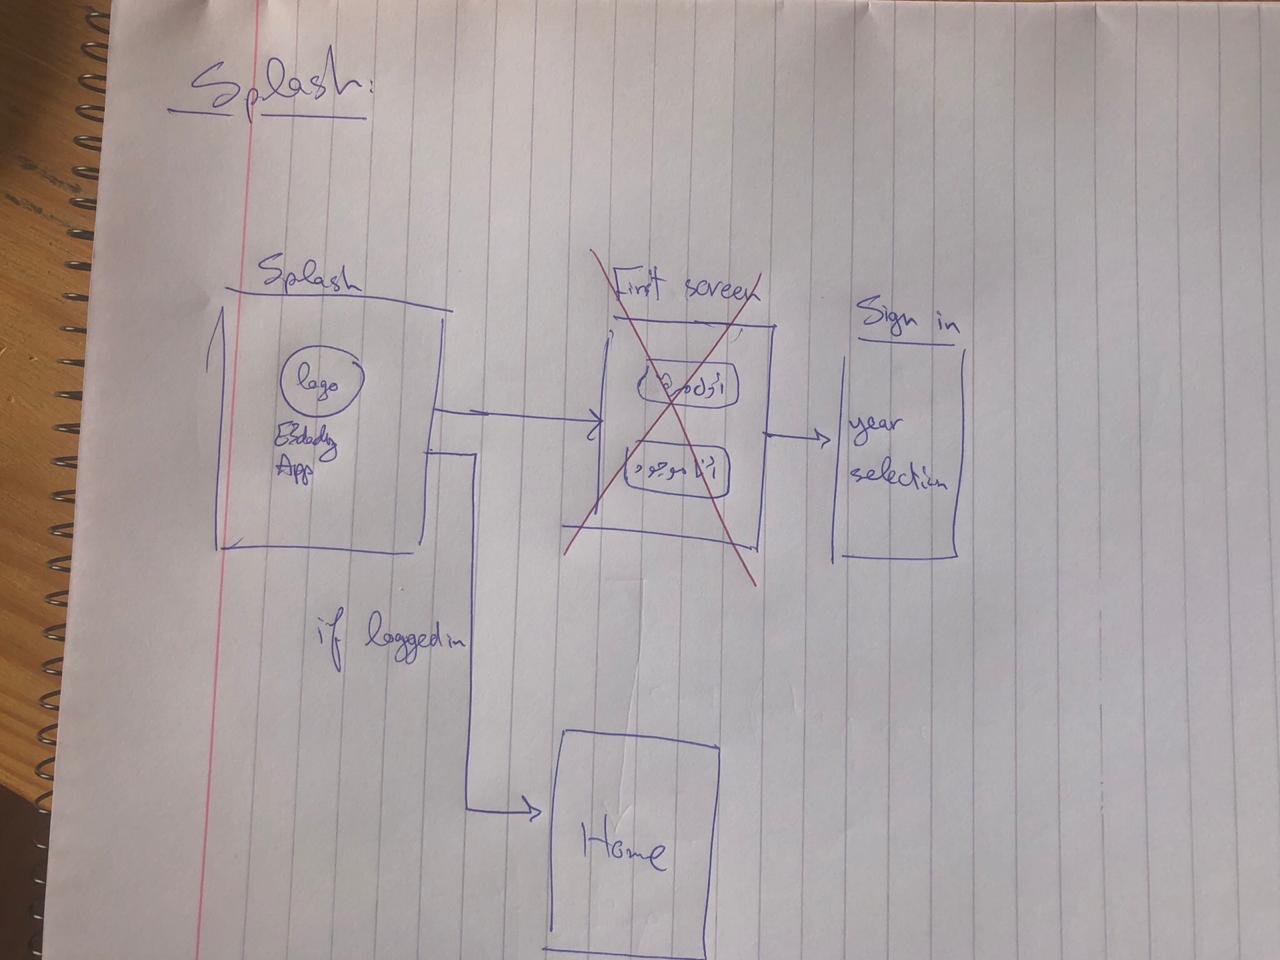 Splash:
Splash
logo
E3dady
App
First screen
Sign in
year
selection
if loggedin
Home